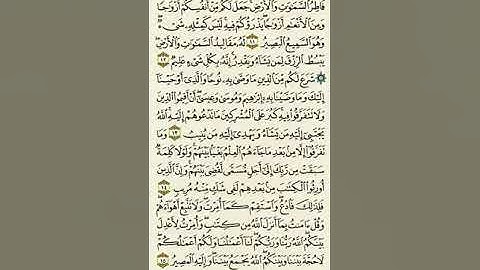 فَاطِرُ السَّمَٰوَٰتِ وَالْأَرْضِ جَعَلَ لَكُم مِّنْ أَنفُسِكُمْ أَزْوَٰجًا
وَمِنَ الْأَنْعَٰمِ أَزْوَٰجًا يَذْرَؤُكُمْ فِيهِ لَيْسَ كَمِثْلِهِ شَىْءٌ
وَهُوَ السَّمِيعُ الْبَصِيرُ ١١ لَهُ مَقَالِيدُ السَّمَٰوَٰتِ وَالْأَرْضِ
يَبْسُطُ الرِّزْقَ لِمَن يَشَاءُ وَيَقْدِرُ إِنَّهُ بِكُلِّ شَىْءٍ عَلِيمٌ ١٢
۞ شَرَعَ لَكُم مِّنَ الدِّينِ مَا وَصَّىٰ بِهِ نُوحًا وَالَّذِى أَوْحَيْنَا
إِلَيْكَ وَمَا وَصَّيْنَا بِهِ إِبْرَٰهِيمَ وَمُوسَىٰ وَعِيسَىٰ أَنْ أَقِيمُوا الدِّينَ
وَلَا تَتَفَرَّقُوا فِيهِ كَبُرَ عَلَى الْمُشْرِكِينَ مَا تَدْعُوهُمْ إِلَيْهِ اللَّهُ
يَجْتَبِى إِلَيْهِ مَن يَشَاءُ وَيَهْدِى إِلَيْهِ مَن يُنِيبُ ١٣ وَمَا
تَفَرَّقُوا إِلَّا مِن بَعْدِ مَا جَاءَهُمُ الْعِلْمُ بَغْيًا بَيْنَهُمْ وَلَوْلَا كَلِمَةٌ
سَبَقَتْ مِن رَّبِّكَ إِلَىٰ أَجَلٍ مُّسَمًّى لَّقُضِىَ بَيْنَهُمْ وَإِنَّ الَّذِينَ
أُورِثُوا الْكِتَٰبَ مِن بَعْدِهِمْ لَفِى شَكٍّ مِّنْهُ مُرِيبٍ ١٤
فَلِذَٰلِكَ فَادْعُ وَاسْتَقِمْ كَمَا أُمِرْتَ وَلَا تَتَّبِعْ أَهْوَاءَهُمْ
وَقُلْ ءَامَنتُ بِمَا أَنزَلَ اللَّهُ مِن كِتَٰبٍ وَأُمِرْتُ لِأَعْدِلَ
بَيْنَكُمُ اللَّهُ رَبُّنَا وَرَبُّكُمْ لَنَا أَعْمَٰلُنَا وَلَكُمْ أَعْمَٰلُكُمْ
لَا حُجَّةَ بَيْنَنَا وَبَيْنَكُمُ اللَّهُ يَجْمَعُ بَيْنَنَا وَإِلَيْهِ الْمَصِيرُ ١٥